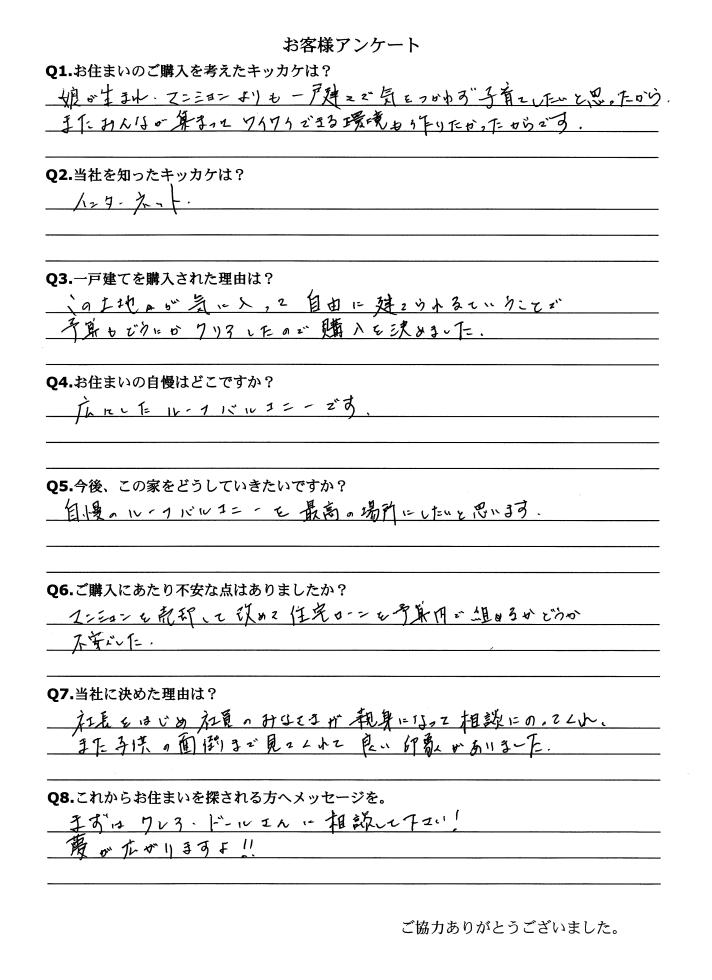 お客様アンケート
Q1.お住まいのご購入を考えたキッカケは？
娘が生まれ、マンションよりも一戸建てで気をつかわず子育てしたいと思ったから。
またみんなが集まってワイワイできる環境も作りたかったからです。
Q2.当社を知ったキッカケは？
インターネット。
Q3.一戸建てを購入された理由は？
この土地が気に入って自由に建てられるということで
予算もどうにかクリアしたので購入を決めました。
Q4.お住まいの自慢はどこですか？
広々したルーフバルコニーです。
Q5.今後、この家をどうしていきたいですか？
自慢のルーフバルコニーを最高の場所にしたいと思います。
Q6.ご購入にあたり不安な点はありましたか？
マンションを売却して改めて住宅ローンを予算内で組めるかどうか
不安でした。
Q7.当社に決めた理由は？
社長をはじめ社員のみなさまが親身になって相談にのってくれ、
また子供の面倒まで見てくれて良い印象がありました。
Q8.これからお住まいを探される方へメッセージを。
まずはクレア・ドールさんに相談して下さい！
夢が広がりますよ!!
ご協力ありがとうございました。